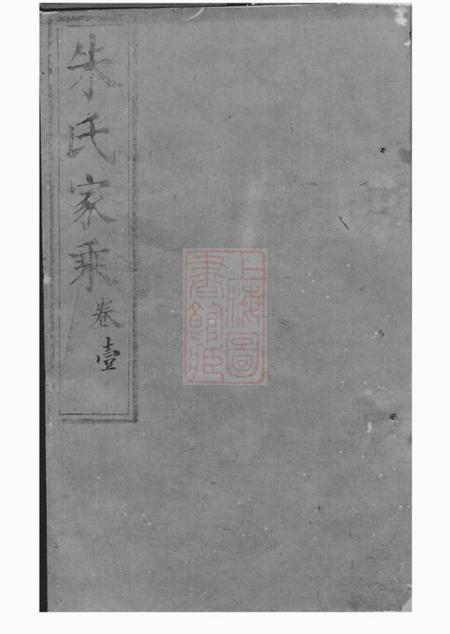 朱氏家乘
卷壹
上海圖
書館藏